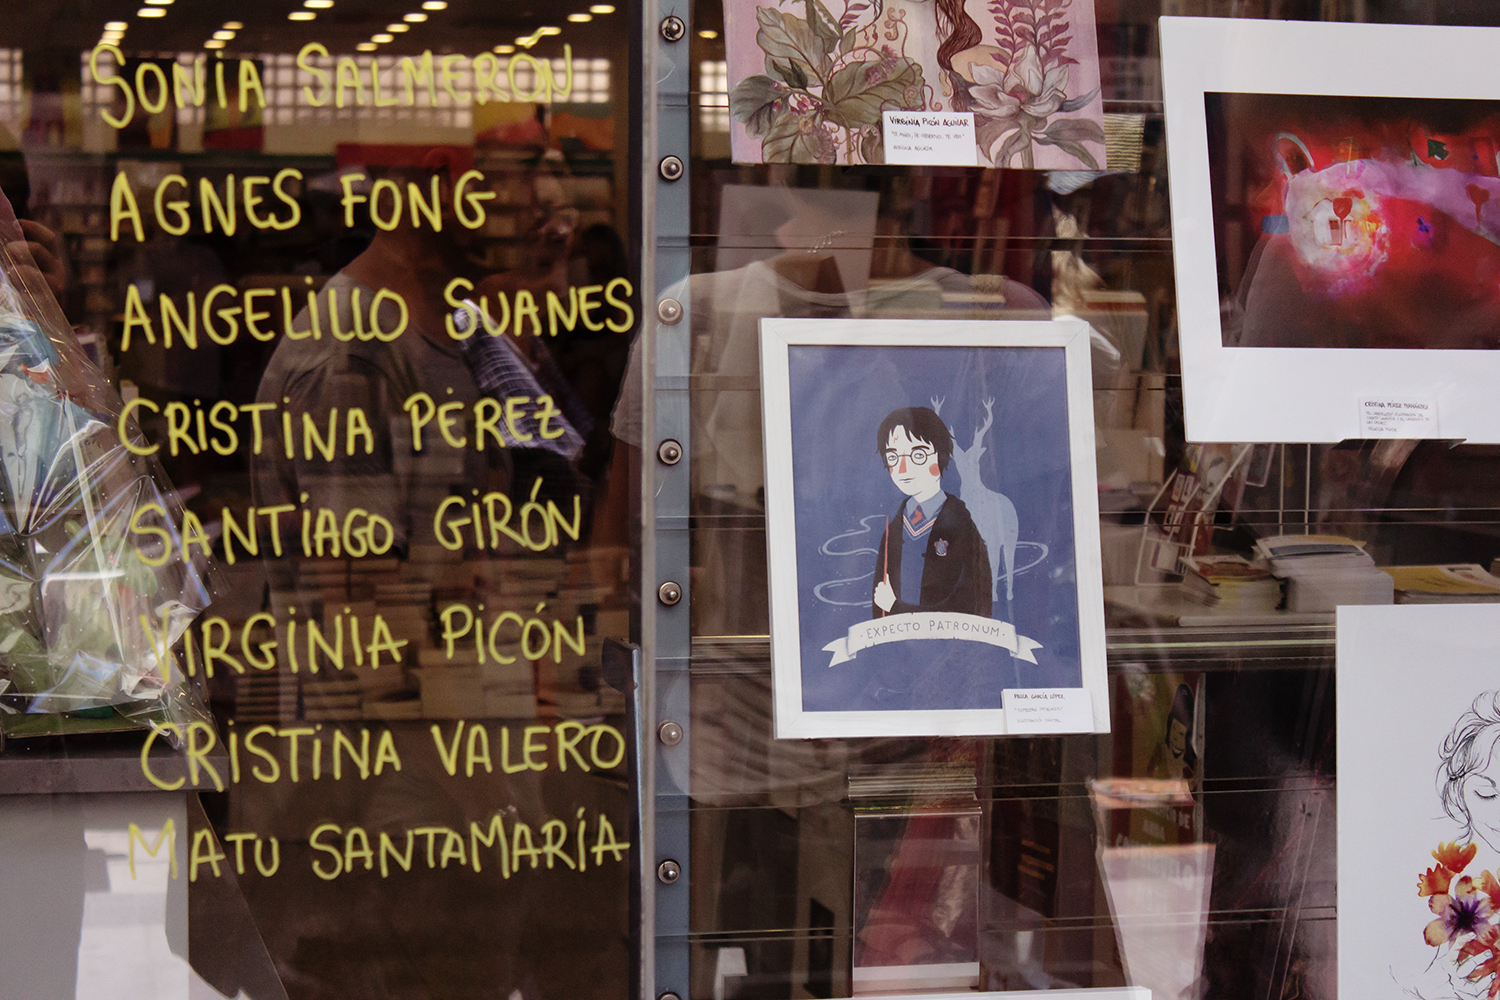 SONIA SALMERÓN
AGNES FONG
ANGELILLO SUANES
CRISTINA PÉREZ
SANTIAGO GIRÓN
VIRGINIA PICÓN
CRISTINA VALERO
MATU SANTAMARÍA
VIRGINIA PICÓN AGUILAR
·EXPECTO PATRONUM·
PAULA GARCÍA LÓPEZ
CRISTINA PÉREZ